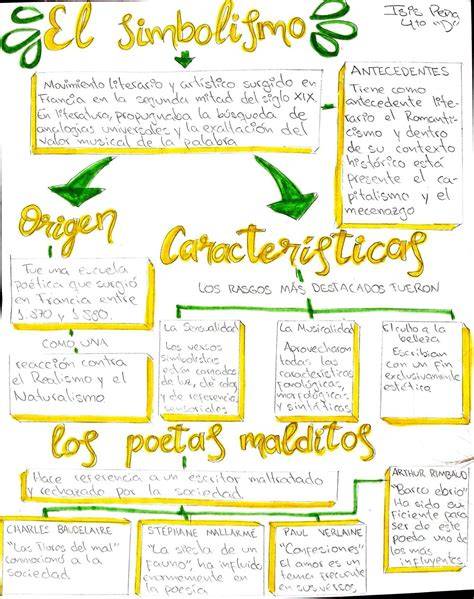 El simbolismo
Isis Pena
4to "D"
Movimiento literario y artístico surgido en
Francia en la segunda mitad del siglo XIX.
En literatura, propugnaba la búsqueda de
analogías universales y la exaltación del
valor musical de la palabra
ANTECEDENTES
Tiene como
antecedente lite-
rario el Romanti-
cismo y dentro
de su contexto
histórico está
presente el ca-
pitalismo y el
mecenazgo
Origen
Fue una escuela
poética que surgió
en Francia entre
1.870 y 1.890.
COMO UNA
reacción contra
el Realismo y el
Naturalismo
Características
LOS RASGOS MÁS DESTACADOS FUERON
La Sensualidad
Los versos
simbolistas
están cargados
de luz, de color
y de referencias
sensoriales
La Musicalidad
Aprovecharon
todas las
características
fonológicas,
morfológicas
y sintácticas
El culto a la
belleza
Escribían
con un fin
exclusivamente
estético
los poetas malditos
Hace referencia a un escritor maltratado
y rechazado por la sociedad
CHARLES BAUDELAIRE
"Las Flores del mal"
conmocionó a la
sociedad
STÉPHANE MALLARMÉ
"La siesta de un
fauno", ha influido
enormemente en
la poesía
PAUL VERLAINE
"Confesiones"
El amor es un
tema frecuente
en sus versos
ARTHUR RIMBAUD
"Barco ebrio"
Ha sido su
ficiente para
ser de este
poeta uno de
los más
influyentes